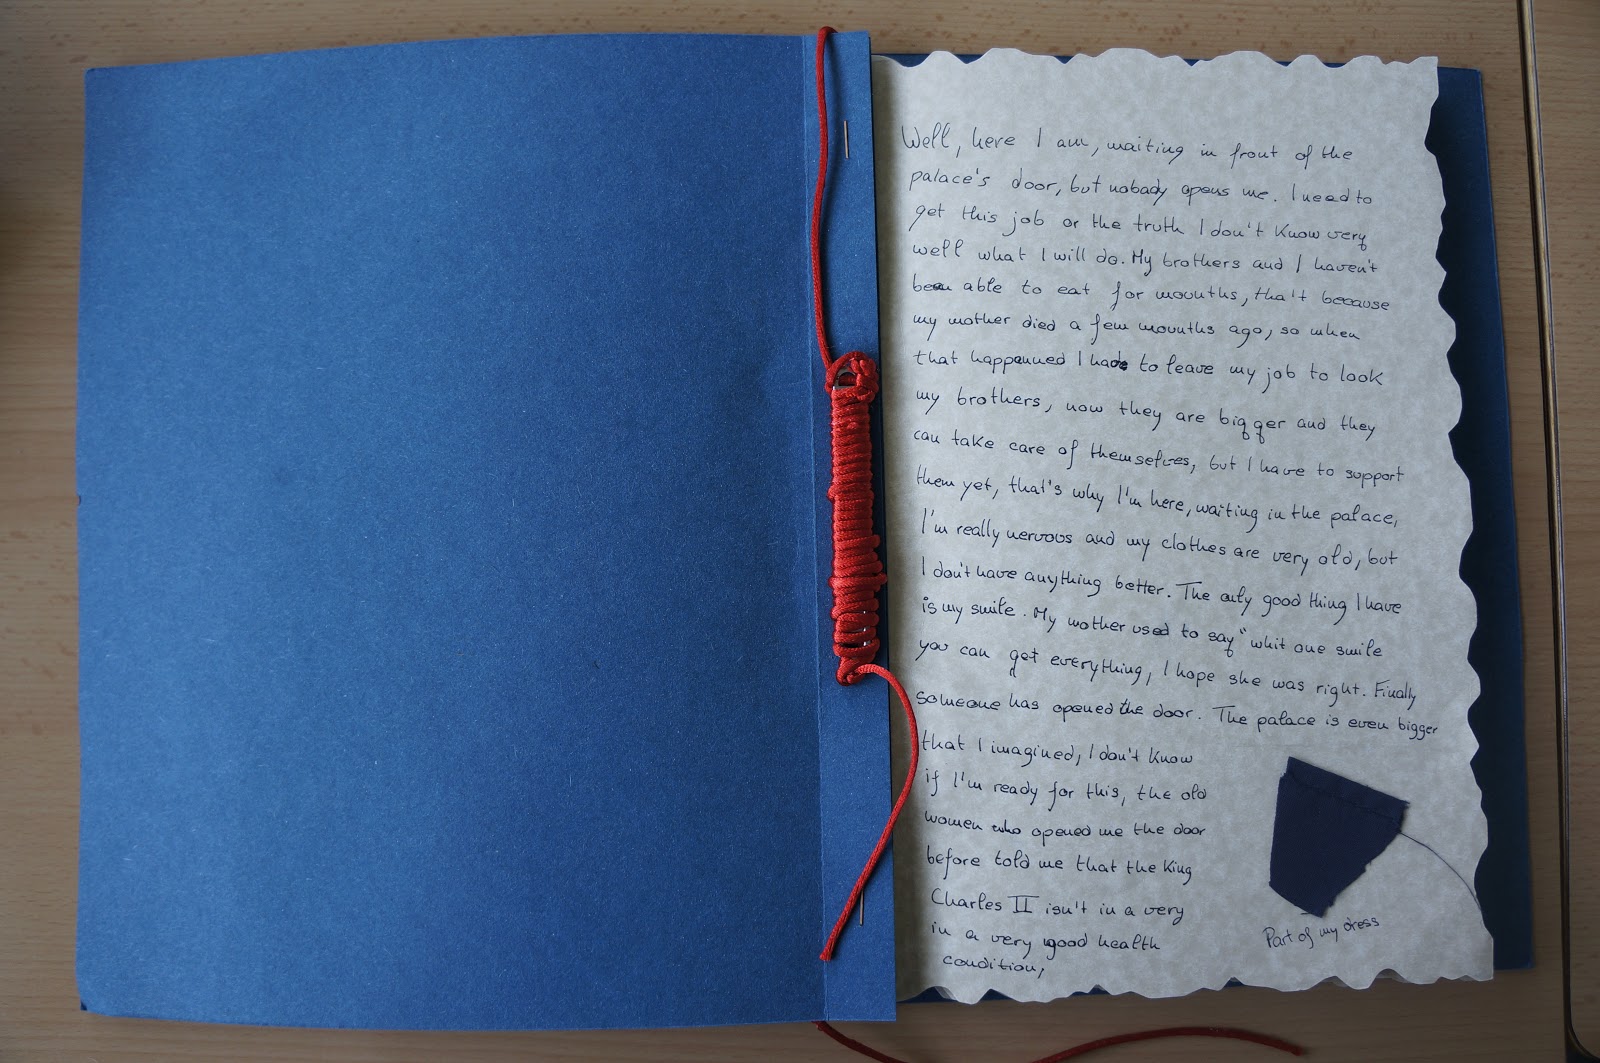 Well, here I am, waiting in front of the
palace's door, but nobody opens me. I need to
get this job or the truth I don't know very
well what I will do. My brothers and I haven't
been able to eat for mounths, tha't because
my mother died a few mounths ago, so when
that happenned I had to leave my job to look
my brothers, now they are bigger and they
can take care of themselves, but I have to support
them yet, that's why I'm here, waiting in the palace,
I'm really nervous and my clothes are very old, but
I don't have anything better. The only good thing I have
is my smile. My mother used to say "whit one smile
you can get everything, I hope she was right. Finally
someone has opened the door. The palace is even bigger
that I imagined, I don't know
if I'm ready for this, the old
women who opened me the door
before told me that the King
Charles II isn't in a very
in a very good health
condition,
Part of my dress